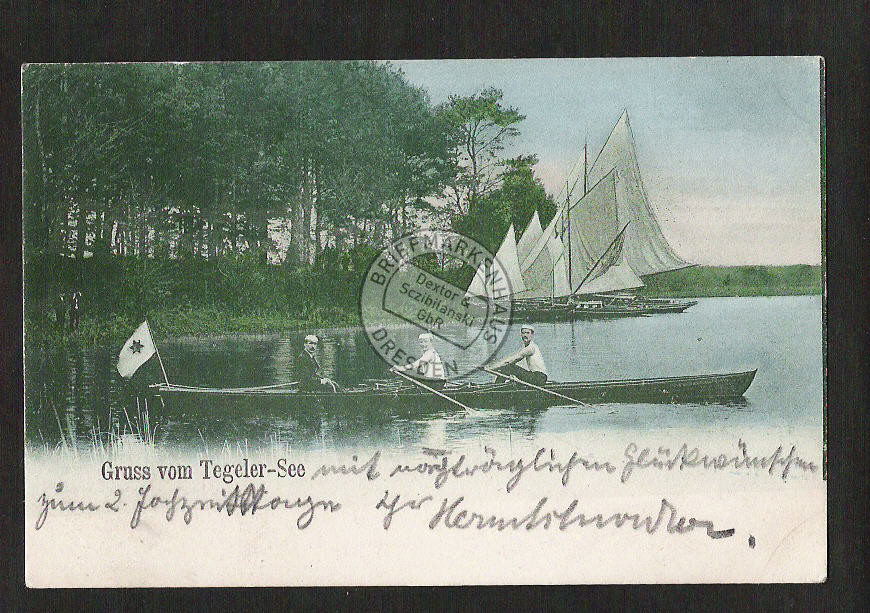 BRIEFMARKENHAUS
Dextor &
Sczibilanski
GbR
DRESDEN
Gruss vom Tegeler-See mit nachträglichen Glückwünschen
zum 2. Hochzeitstage Ihr